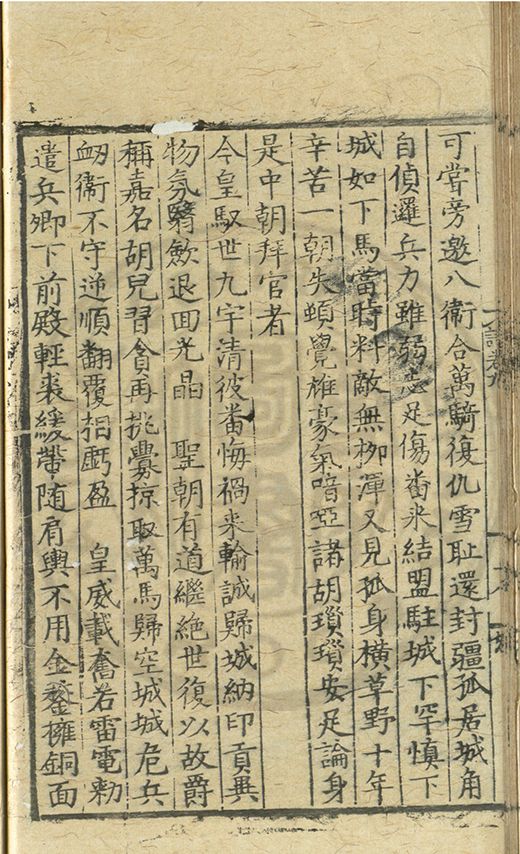 可嘗旁邀八衞合萬騎復仇雪耻還封疆孤居城角
自偵邏兵力雖弱志足傷畨米結盟駐城下罕愼下
城如下馬當時料敵無柳渾又見孤身橫草野十年
辛苦一朝失頓覺雄豪氣喑啞諸胡瑣瑣安足論身
是中朝拜官者
今皇馭世九宇清彼畨悔禍來輸誠歸城納印貢異
物氛翳歛退回光晶　聖朝有道繼絶世復以故爵
稱嘉名胡兒習貪再挑釁掠取萬馬歸空城城危兵
衂衞不守逆順翻覆相虧盈　皇威載奮若雷電勑
遣兵卿下前殿輕裘緩帶隨肩輿不用金鏊擁銅面
詩卷九